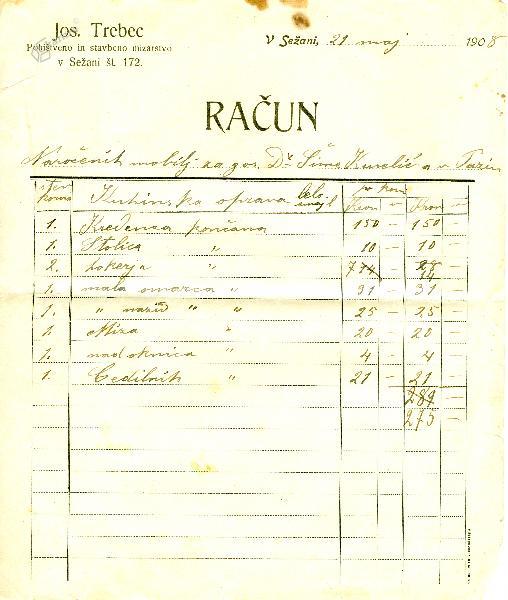 Jos. Trebec
Pohištveno in stavbeno mizarstvo
v Sežani št. 172.
V Sežani, 21 maj 1908
RAČUN
Naročenih mobilj za gos. Dr Šime Kurelić a v Pazin
Kuhinska oprava belo
Kron Kron
1. Kredenca končana 150 – 150 –
1. Stolica " 10 – 10 –
2. " 7 14 – 28 14 –
1. mala omarca " 31 – 31 –
1. " nazid " " 25 – 25 –
1. Miza " 20 – 20 –
1. nad oknica " 4 – 4 –
1. Cedilnik " 21 – 21 –
289 –
275 –